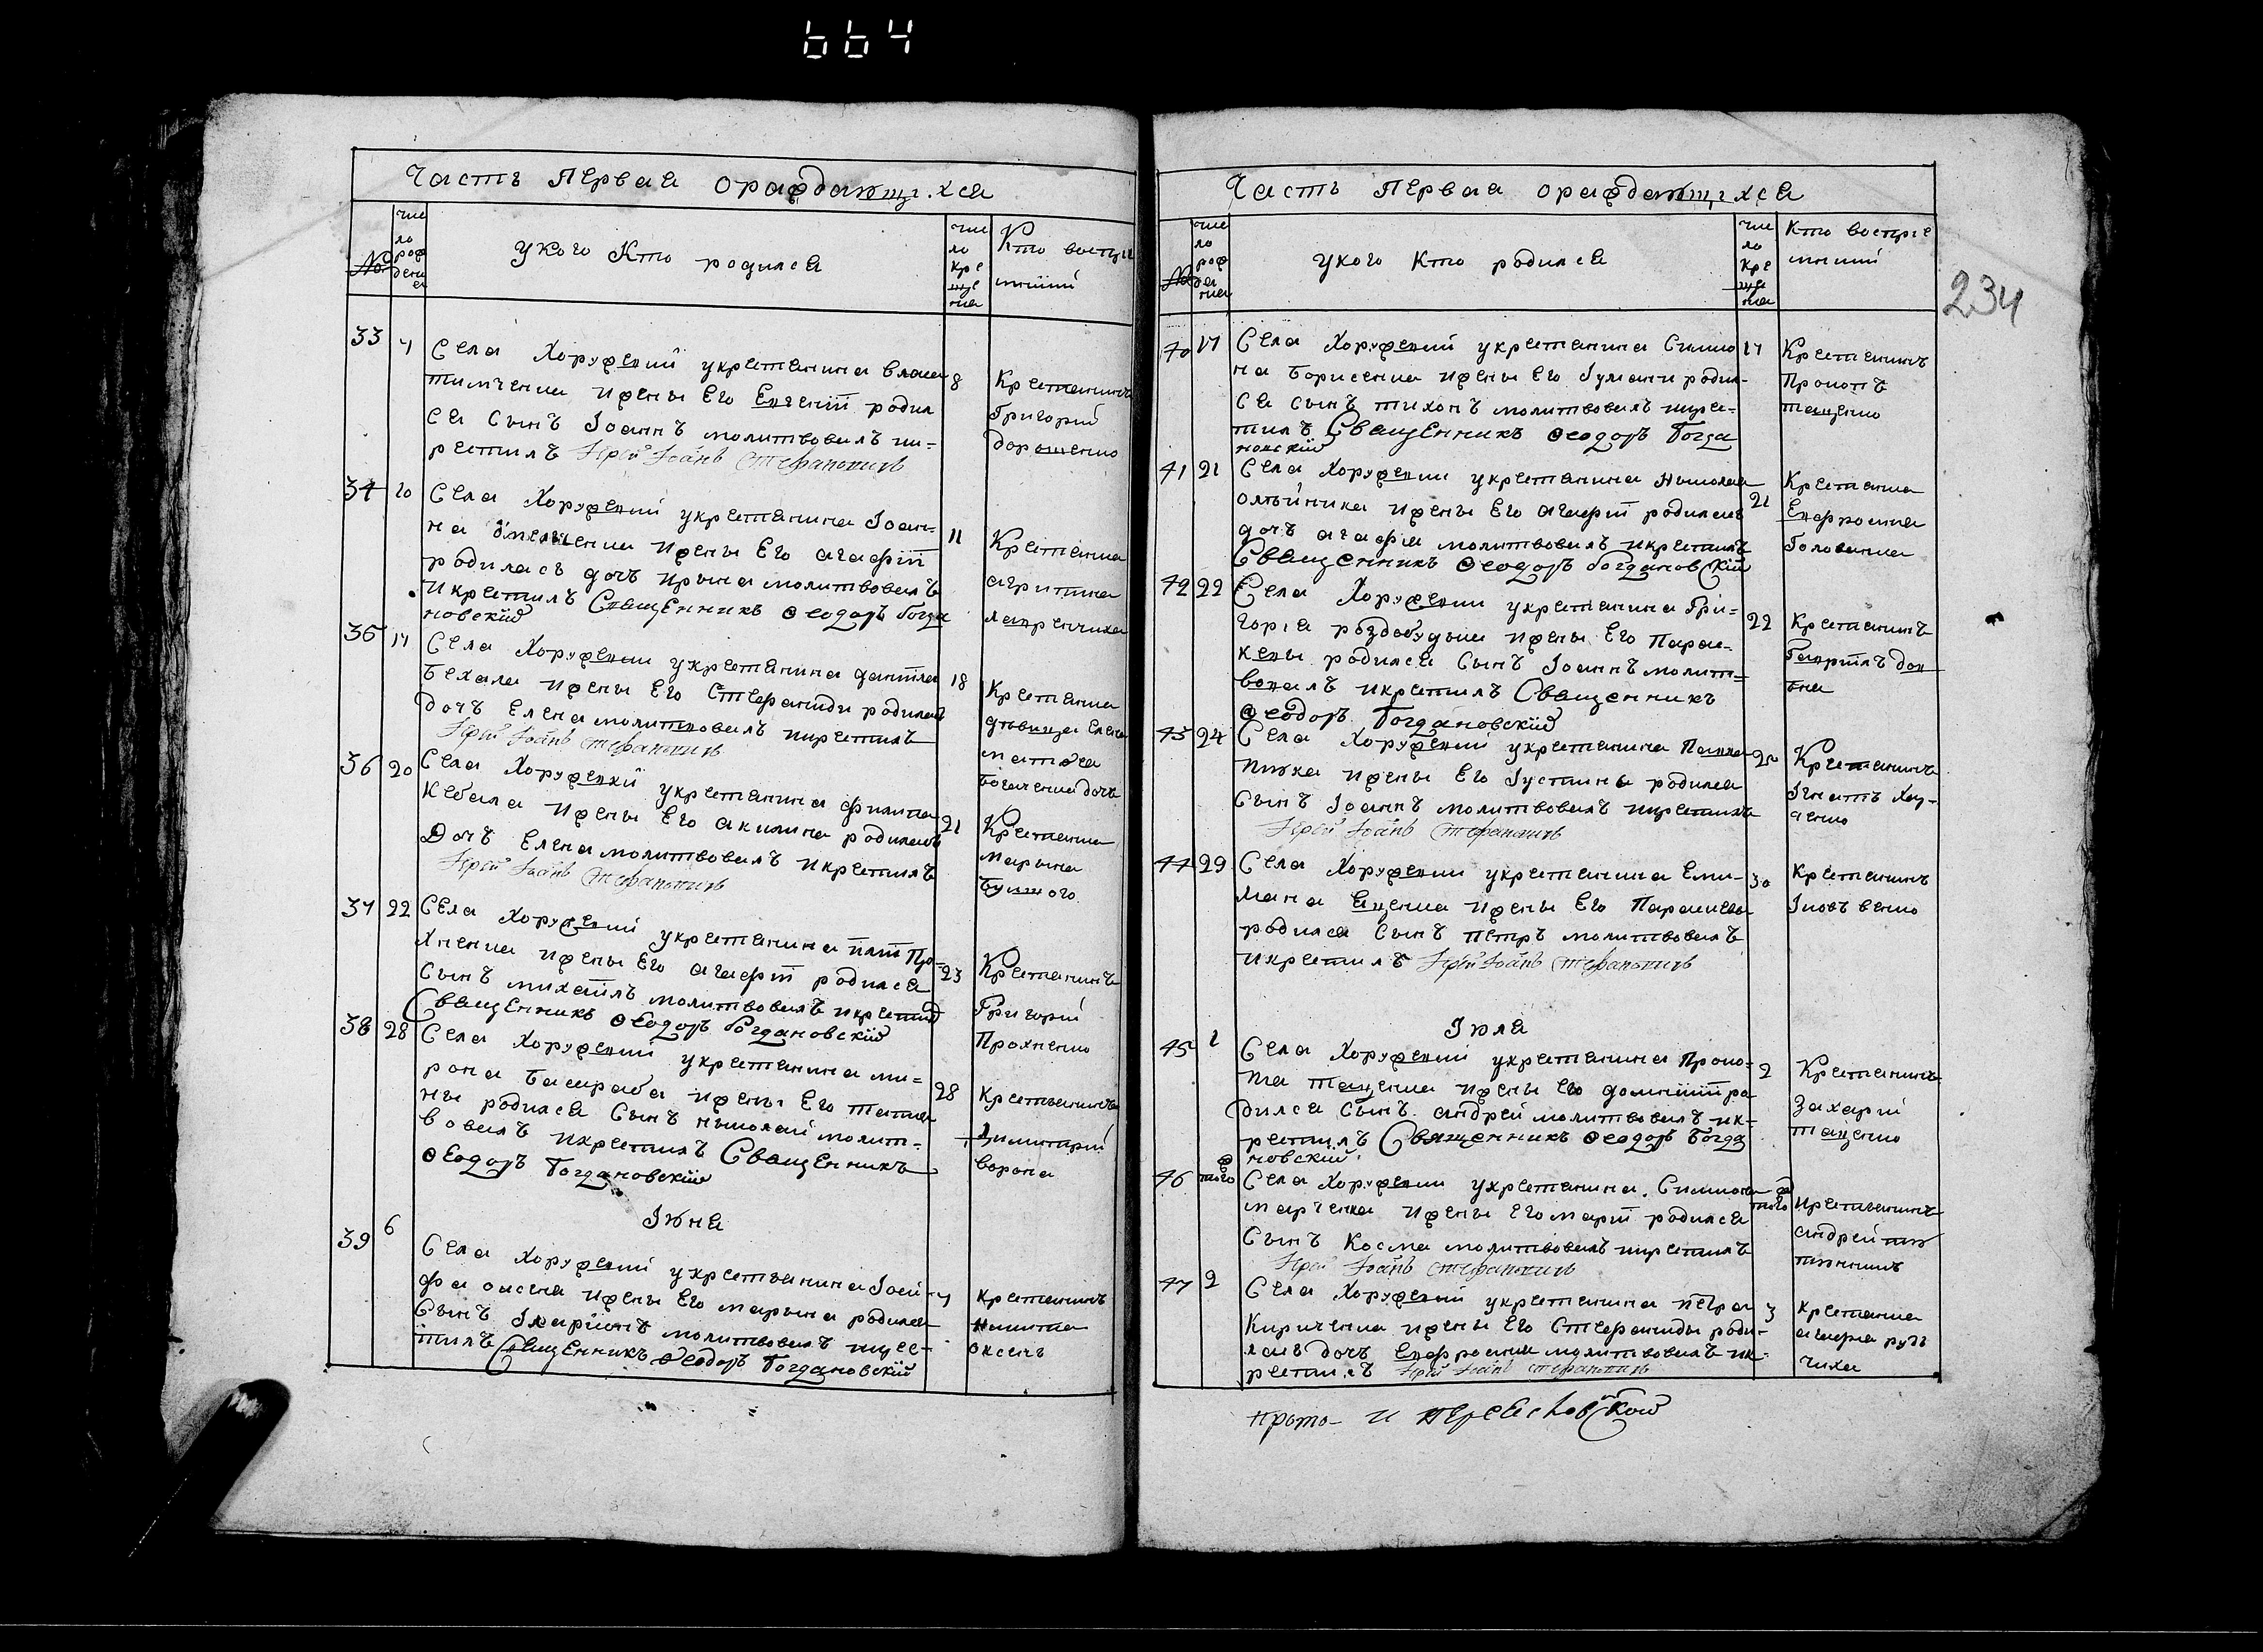 664
Часть Первая ораждающихся
№
число рождения
укого Кто родился
число крещения
Кто воспріемниї
33
Села Хоружевкї укрестянина власа
тимченка ижены Его Евгенїї родил
ся Сынъ Іоаннъ молитвовалъ ик=
рестилъ Іерей Іоаннъ Стефановичъ
8
Крестянинъ
Григорий
дорошенко
34
10
Села Хоружевкї укрестянина Іоан=
на ижены Его агафїї
родилась дочь ирына молитвовалъ
икрестилъ Священникъ Ѳеодоръ Богда
новскїй
11
Крестянка
агрипина
лавренчиха
35
17
Села Хоружевки укрестянина данїїла
бехала ижены Его Стефаниды родилась
дочъ Елена молитвовалъ икрестилъ
Іерей Іоаннъ Стефановичъ
18
Крестянка
дѣвица Елена
матвѣя
дочь
36
20
Села Хоружевкї укрестянина филипа
кебала ижены Его акилина родилась
Дочъ Елена молитвовалъ икрестилъ
Іерей Іоаннъ Стефановичъ
21
Крестянка
марына
37
22
Села Хоружевкї укрестянина Про=
хненка ижены Его агафїї родился
Сынъ михаїлъ молитвовалъ икрестил
Священникъ Ѳеодоръ Богдановскїй
23
Крестянинъ
Григорїй
Прохненко
38
28
Села Хоружевкї укрестянина ми=
рона башраба ижены Его татия
ны родился Сынъ николай молит=
вовалъ икрестилъ Священникъ
Ѳеодоръ Богдановскїй
28
Крестьянинъ
Димитрїй
ворона
Іюня
39
6
Села Хоружевкї укрестьянина Іоси=
фа оксена ижены Его марына родился
Сынъ Іларіїонъ молитвовалъ икрес=
тилъ Священникъ Ѳеодоръ Богдановскїй
7
крестянинъ
никита
оксенъ
Часть Первая ораждающихся
№
число рождения
укого Кто родился
число крещения
Кто воспріемниї
234
40
17
Села Хоружевкї укрестянина Симио
на борисенка ижены Его Іулианы родил=
ся Сынъ тихонъ молитвовалъ икрес=
тилъ Священникъ Ѳеодоръ Богда
новскїй
17
Крестянинъ
Прокопъ
таценко
41
21
Села Хоружевки укрестянина николая
олѣйника ижены Его агафїї родилась
дочъ агафия молитвовалъ икрестилъ
Священникъ Ѳеодоръ Богдановскїй
21
Крестянка
Евфросина
Голованка
42
22
Села Хоружевки укрестянина Гри=
горія роздобудька ижены Его Парас=
кевы родился Сынъ Іоаннъ молит=
вовалъ икрестилъ Священникъ
Ѳеодоръ Богдановскїй
22
Крестянинъ
Гаврїїлъ дов
бня
43
24
Села Хоружевкї укрестянина Павла
ижены Его Іустины родился
Сынъ Іоаннъ молитвовалъ икрестилъ
Іерей Іоаннъ Стефановичъ
25
Крестянинъ
Ігнатъ
44
29
Села Хоружевки укрестянина Еми=
лиана Яценка ижены Его Параскевы
родился Сынъ Петръ молитвовалъ
икрестилъ Іерей Іоаннъ Стефановичъ
30
Крестянинъ
Іковъ
Іюля
45
1
Села Хоружевкї укрестянина Проко=
па таценка ижены его домникїї ро
дился Сынъ андрей молитвовалъ ик=
рестилъ Священникъ Ѳеодоръ Богда
новскїй
2
Крестянинъ
Захарїй
таценко
46
тогож
Села Хоружевки укрестянина Симиона
марченка ижены Его марїї родился
Сынъ Косма молитвовалъ икрестилъ
Іерей Іоаннъ Стефановичъ
тогож
крестьянинъ
андрей
47
2
Села Хоружевкї укрестянина петра
Кириченка ижены Его Стефаниды роди=
лась дочъ Евфросиния молитвовалъ ик=
рестилъ Іерей Іоаннъ Стефановичъ
3
крестянка